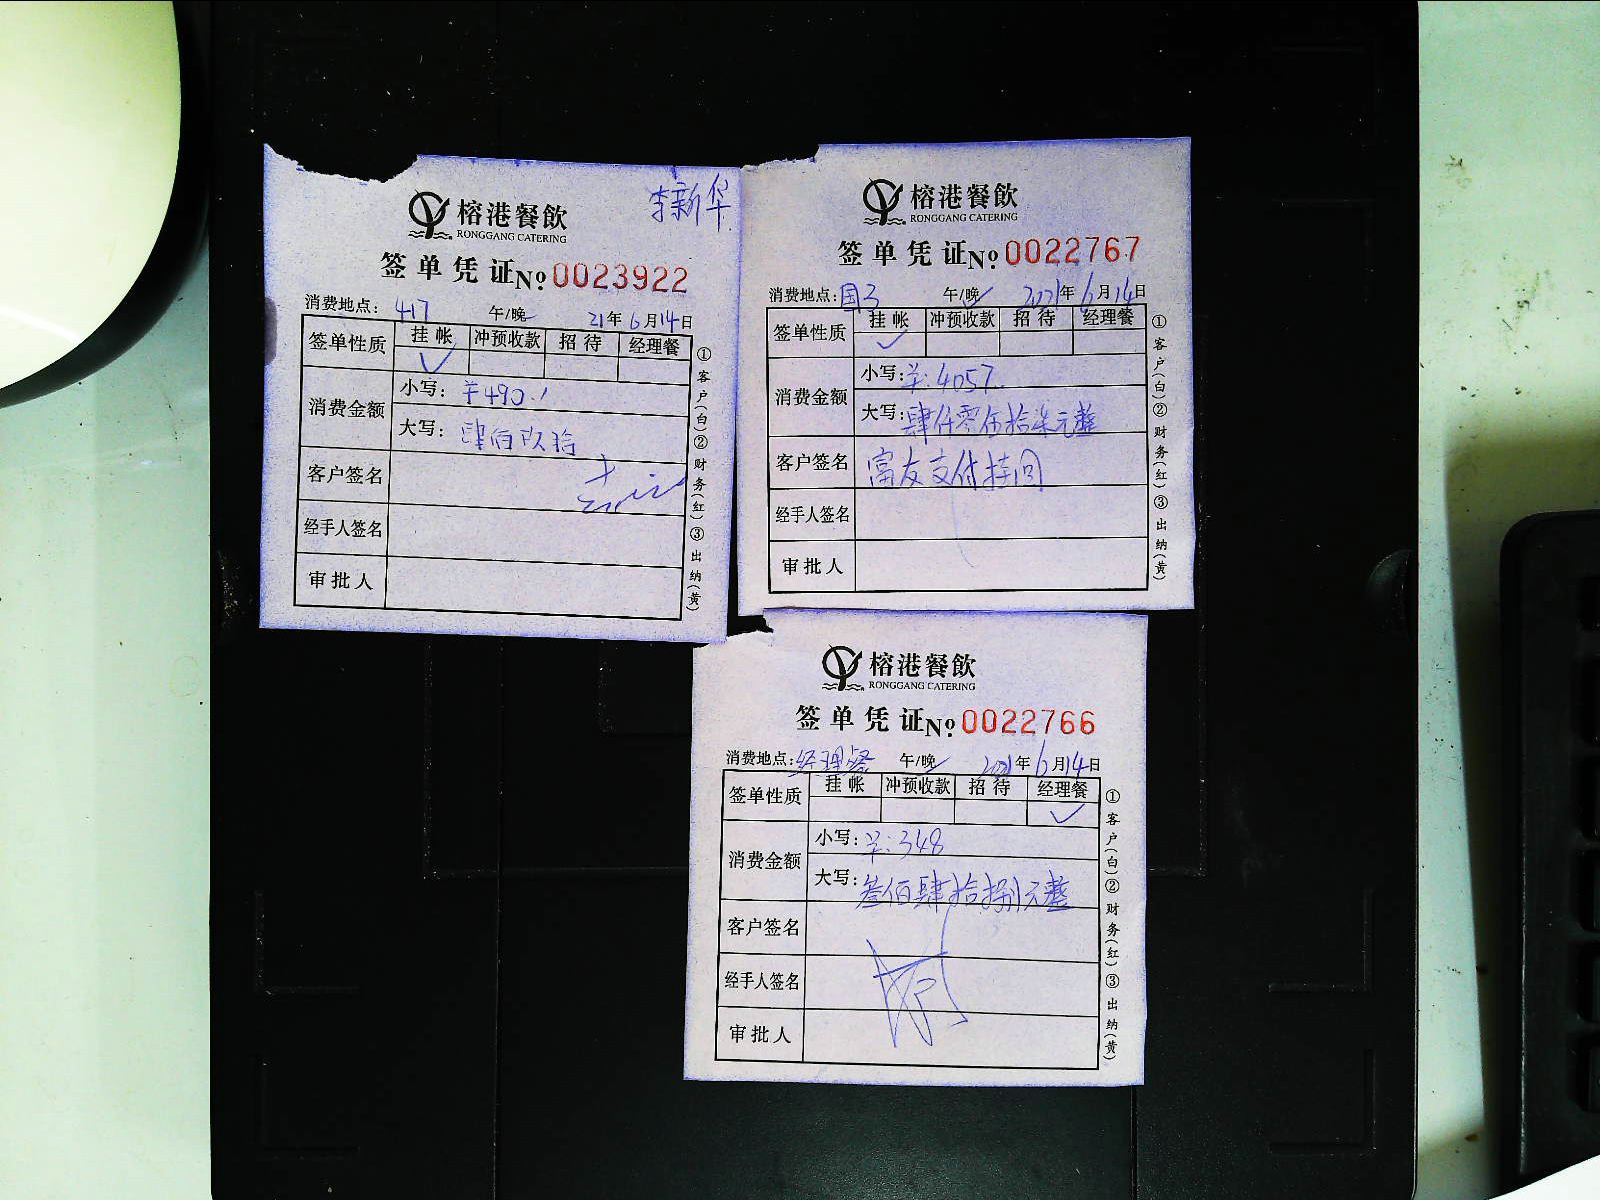 李新华
榕港餐飲
RONGGANG CATERING
签单凭证 No. 0023922
消费地点: 417 午/晚 21年6月14日
签单性质 挂帐 冲预收款 招待 经理餐
消费金额
小写: ¥490.
大写: 肆佰玖拾
客户签名
经手人签名
审批人
①客户(白)②财务(红)③出纳(黄)
榕港餐飲
RONGGANG CATERING
签单凭证 No. 0022767
消费地点: 国3 午/晚 2021年6月14日
签单性质 挂帐 冲预收款 招待 经理餐
消费金额
小写: ¥:4057.
大写: 肆仟零伍拾柒元整
客户签名 富友支付
经手人签名
审批人
①客户(白)②财务(红)③出纳(黄)
榕港餐飲
RONGGANG CATERING
签单凭证 No. 0022766
消费地点: 经理餐 午/晚 2021年6月14日
签单性质 挂帐 冲预收款 招待 经理餐
消费金额
小写: ¥:348
大写: 叁佰肆拾捌元整
客户签名
经手人签名
审批人
①客户(白)②财务(红)③出纳(黄)